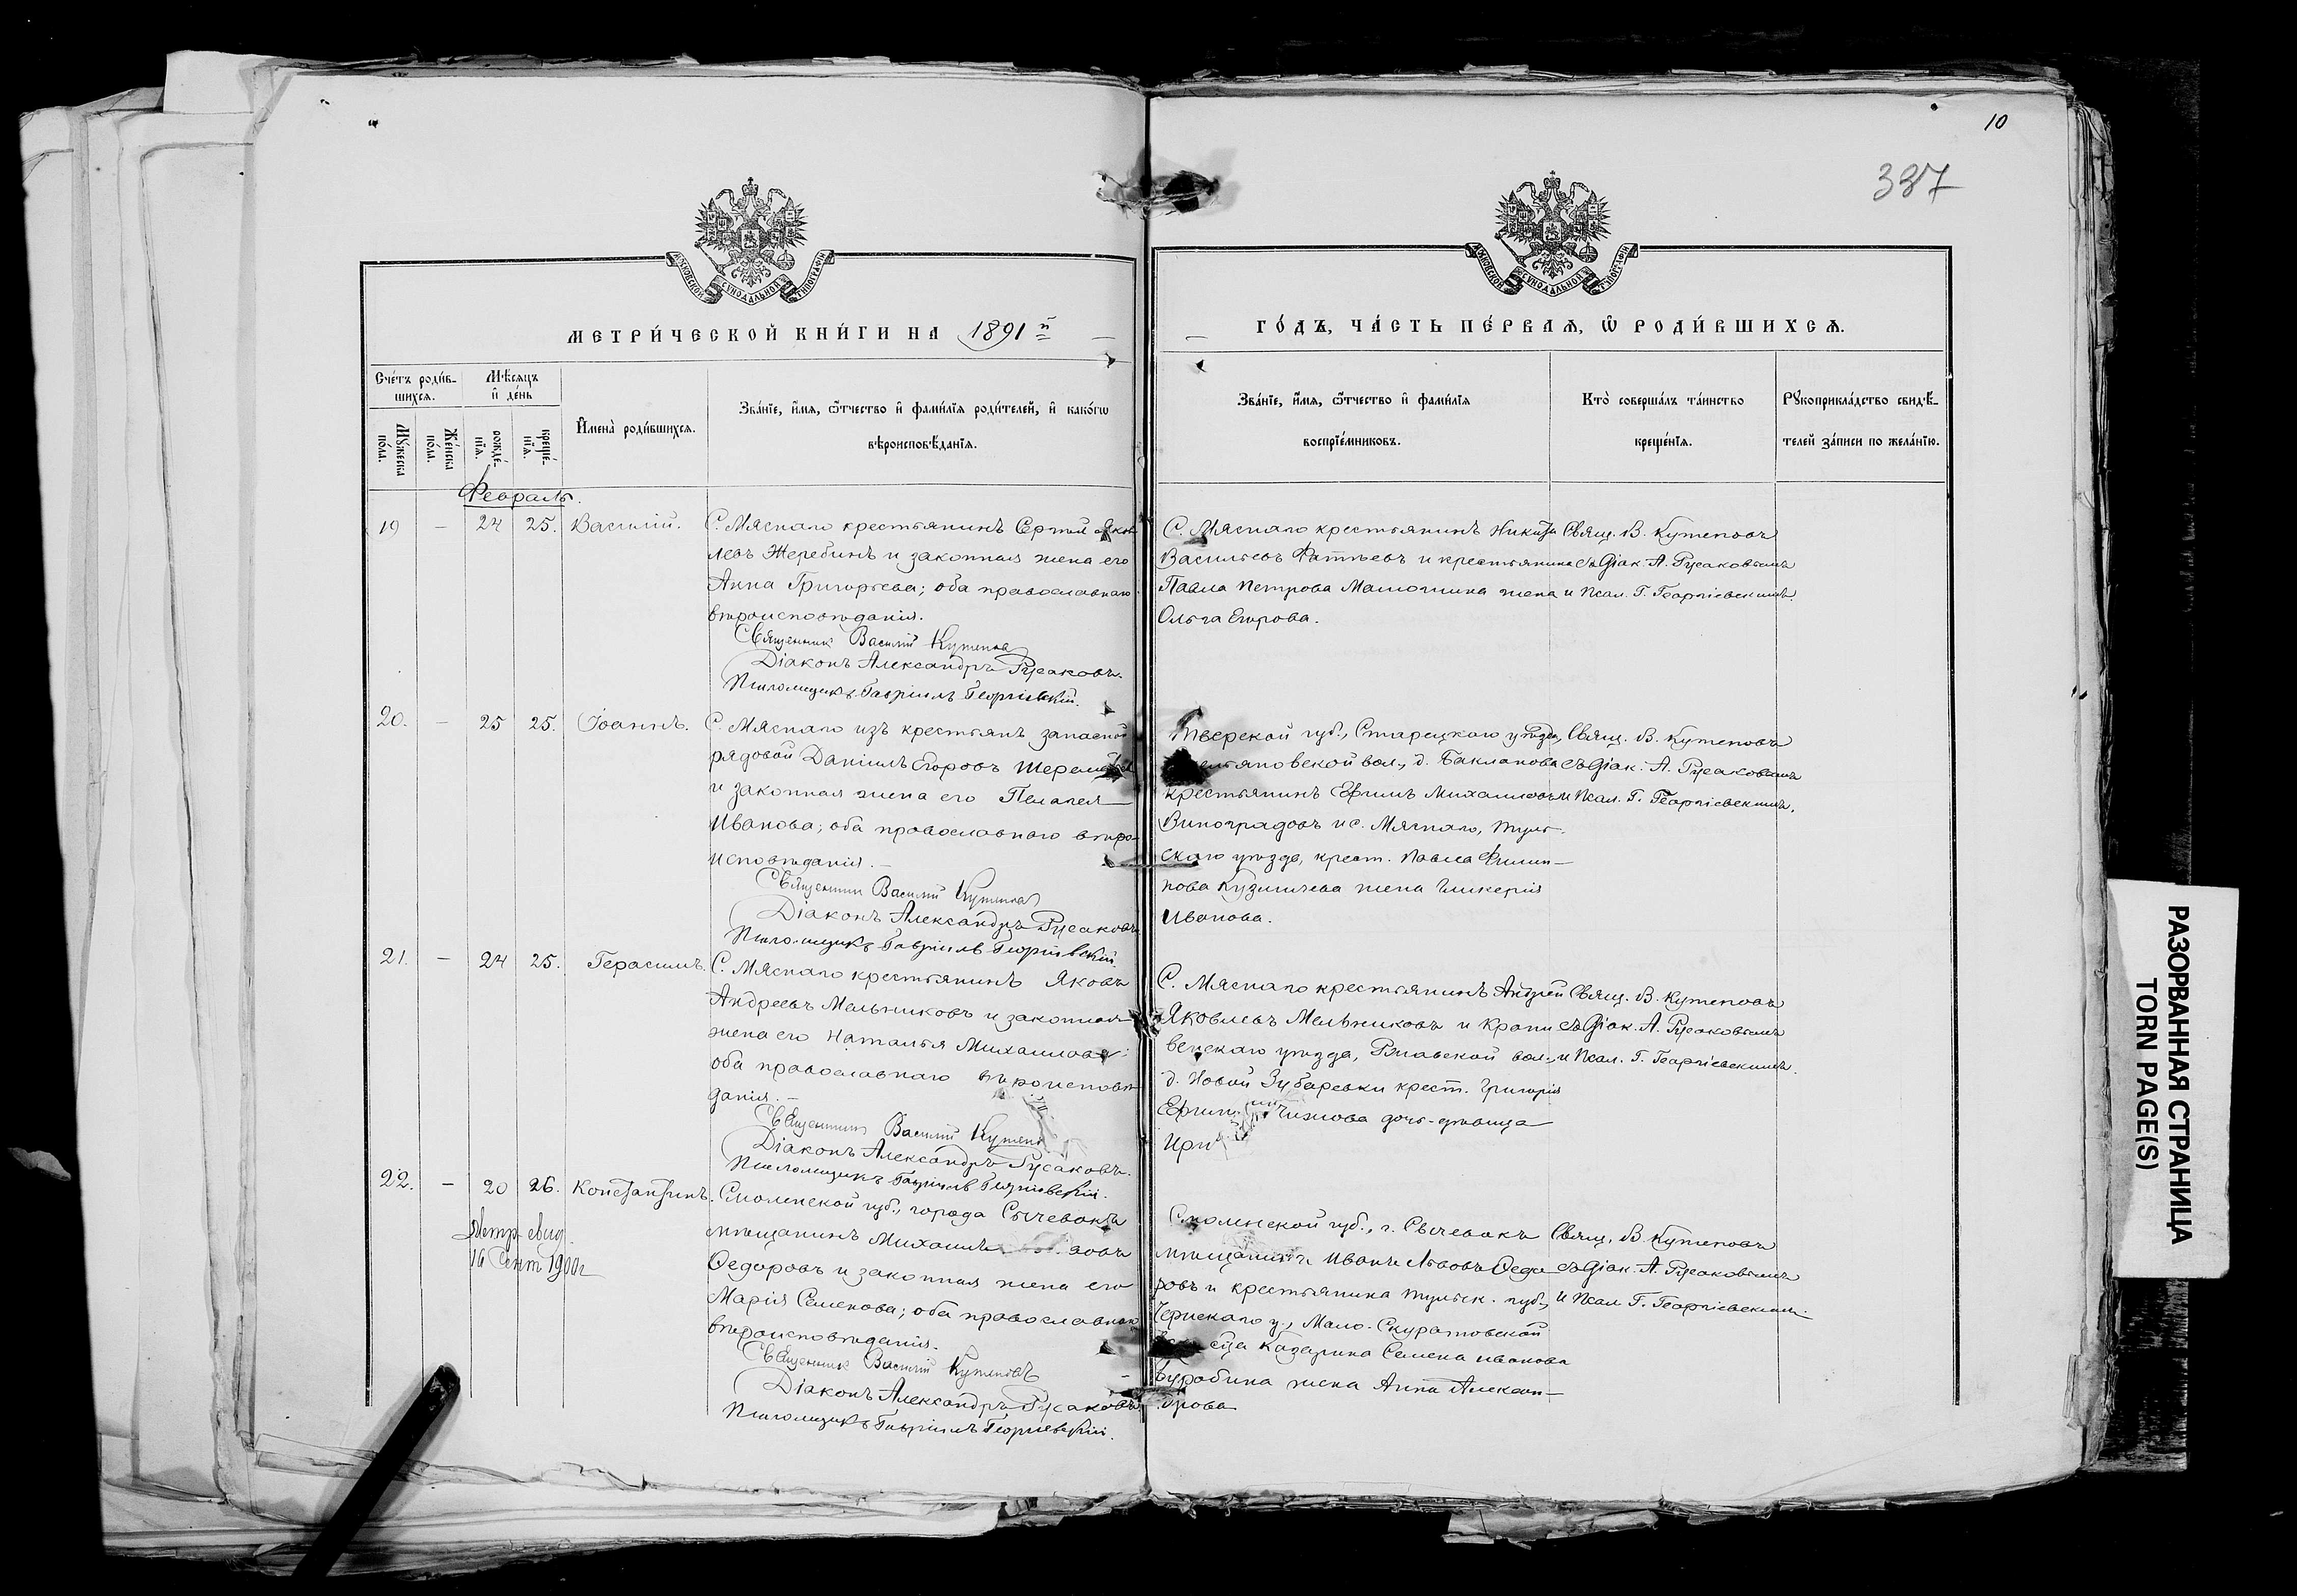 10
387
МОСКОВСКОЙ СѴНОДАЛЬНОЙ ТИПОГРАФІИ
МОСКОВСКОЙ СѴНОДАЛЬНОЙ ТИПОГРАФІИ
МЕТРИ́ЧЕСКОЙ КНИ́ГИ НА 1891й
ГО́ДЪ, ЧА́СТЬ ПЕ́РВАЯ, Ѽ РОДИ́ВШИХСЯ.
Сче́тъ роди́в-
шихся.
Мѣ́сяцъ
и҆ де́нь
Мꙋ́жеска
по́ла.
Же́нска
по́ла.
рожде́-
нїѧ.
креще́-
нїѧ.
И҆мена̀ роди́вшихся.
Зва́нїе, и҆́мя, ѻ҆́тчество и҆ фами́лїя роди́телей, и҆ како́гѡ
вѣроисповѣ́данїя.
Зва́нїе, и҆́мя, ѻ҆́тчество и҆ фами́лїя
воспрїе́мниковъ.
Кто̀ соверша́лъ та́инство
креще́нїя.
Рꙋкоприкла́дство свидѣ́-
телей за́писи по жела́нїю.
Февраль.
19 – 24 25. Василій.
С. Мяснаго крестьянинъ Сергѣй Яков
левъ Жеребинъ и законная жена его
Анна Григорьева; оба православнаго
вѣроисповѣданія.
Священникъ Василій Кутеповъ
Діаконъ Александръ Русаковъ.
Псаломщикъ Гавріилъ Георгіевскій.
С. Мяснаго крестьянинъ Никита
Васильевъ Фатѣевъ и крестьянина
Павла Петрова Мамошина жена
Ольга Егорова.
Свящ. В. Кутеповъ
съ Діак. А. Русаковымъ
и Псал. Г. Георгіевскимъ.
20. – 25 25. Іоаннъ.
С. Мяснаго изъ крестьянъ запасной
рядовой Даніилъ Егоровъ
и законная жена его Пелагея
Иванова; оба православнаго вѣро-
исповѣданія. –
Священникъ Василій Кутеповъ
Діаконъ Александръ Русаковъ
Псаломщикъ Гавріилъ Георгіевскій.
Тверской губ., Старицкаго уѣзда,
вол., д. Бакланова
крестьянинъ Ефимъ Михаиловъ
Виноградовъ и с. Мяснаго, Туль-
скаго уѣзда, крест. Павла Филип-
пова Кузмичева жена Гликерія
Иванова.
Свящ. В. Кутеповъ
съ Діак. А. Русаковымъ
и Псал. Г. Георгіевскимъ.
21. – 24 25. Герасимъ.
С. Мяснаго крестьянинъ Яковъ
Андреевъ Мельниковъ и законная
жена его Наталья Михаилова;
оба православнаго вѣроисповѣ
данія. –
Священникъ Василій
Діаконъ Александръ Русаковъ.
Псаломщикъ Гавріилъ Георгіевскій.
С. Мяснаго крестьянинъ Андрей
Яковлевъ Мельниковъ и Крапи
венскаго уѣзда, Ржавской вол.,
д. Новой Зубаревки крест. Григорія
Чижова дочь-дѣвица
Свящ. В. Кутеповъ
съ Діак. А. Русаковымъ
и Псал. Г. Георгіевскимъ.
22. – 20 26. Константинъ.
Метр. свид.
16 Сент 1900г
Смоленской губ., города Сычевокъ
мѣщанинъ Михаилъ
Ѳедоровъ и законная жена его
Марія Семенова; оба православнаго
вѣроисповѣданія.
Священникъ Василій Кутеповъ
Діаконъ Александръ Русаковъ
Псаломщикъ Гавріилъ Георгіевскій.
Смоленской губ., г. Сычевокъ
мѣщанинъ Иванъ Львовъ Ѳедо
ровъ и крестьянина Тульск. губ.,
Чернскаго у., Мало-Скуратовской
сца Казарина Семена Иванова
жена Анна Алексан-
дрова
Свящ. В. Кутеповъ
съ Діак. А. Русаковымъ
и Псал Г. Георгіевскимъ.
РАЗОРВАННАЯ СТРАНИЦА
TORN PAGE(S)